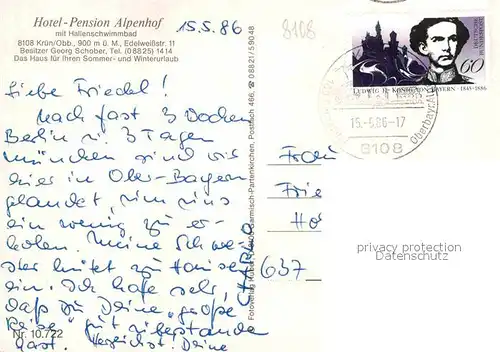 Hotel-Pension Alpenhof
mit Hallenschwimmbad
8108 Krün/Obb., 900 m ü. M., Edelweißstr. 11
Besitzer Georg Schober, Tel. (08825) 1414
Das Haus für Ihren Sommer- und Winterurlaub
15.5.86
8108
Liebe Friedel!
Nach fast 3 Wochen
Berlin u. 3 Tagen
München sind wir
hier in Ober-Bayern
gelandet, um uns
ein wenig zu er-
holen. Meine Schwe-
ster hütet zu Hause
ein. Ich hoffe sehr,
daß Du Deine „große
Reise" gut überstanden
hast. Herzlichst Deine
Nr. 10.722
Garmisch-Partenkirchen, Postfach 466, ☎ 08821/59048
60
LUDWIG II. KÖNIG VON BAYERN · 1845-1886
15.-5.86-17
8108
Oberbayern
Frau
Frie
Ho
637
privacy protection
Datenschutz